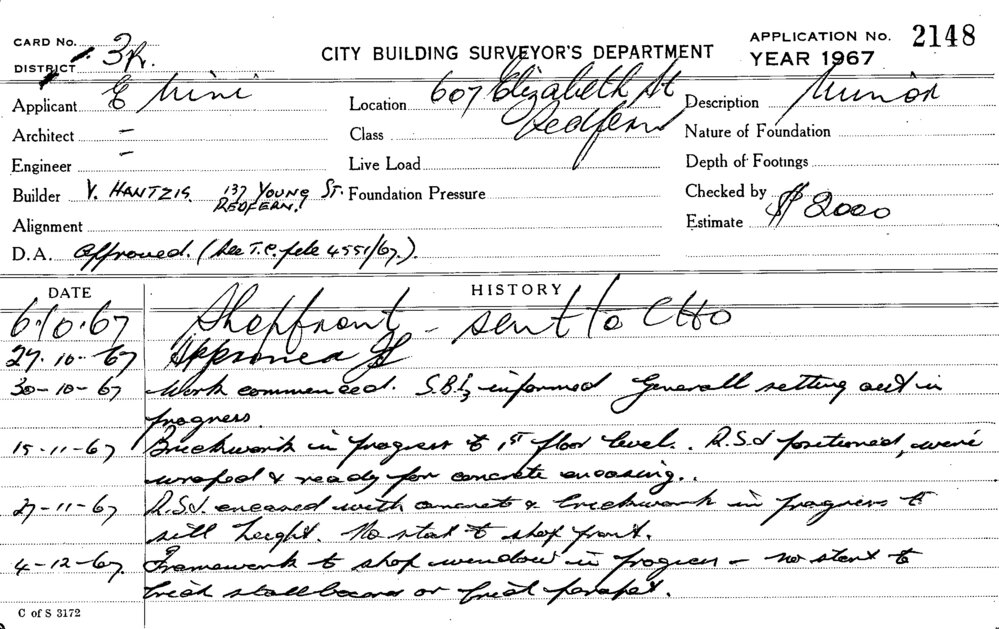 CARD No. 3R.
DISTRICT
CITY BUILDING SURVEYOR'S DEPARTMENT
APPLICATION No. 2148
YEAR 1967
Applicant E Mini
Location 607 Elizabeth St
Redfern
Description Minor
Architect -
Class
Nature of Foundation
Engineer -
Live Load
Depth of Footings
Builder V. HANTZIS. 137 YOUNG ST.
REDFERN.
Foundation Pressure
Checked by
Alignment
Estimate $2000
D.A. approved. (See T.P. file 4551/67.).
DATE HISTORY
6.10.67 Shopfront - sent to CHO
27.10.67 Approved
30-10-67 Work commenced. S.B.I. informed Generall setting out in
progress.
15-11-67 Brickwork in progress to 1st floor level. R.S.J positioned, wire
wraped & ready for concrete encasing..
27-11-67 R.S.J. encased with concrete & brickwork in progress to
sill height. No start to shop front.
4-12-67. Framework to shop window in progress - no start to
brick stallboard or brick parapet.
C of S 3172